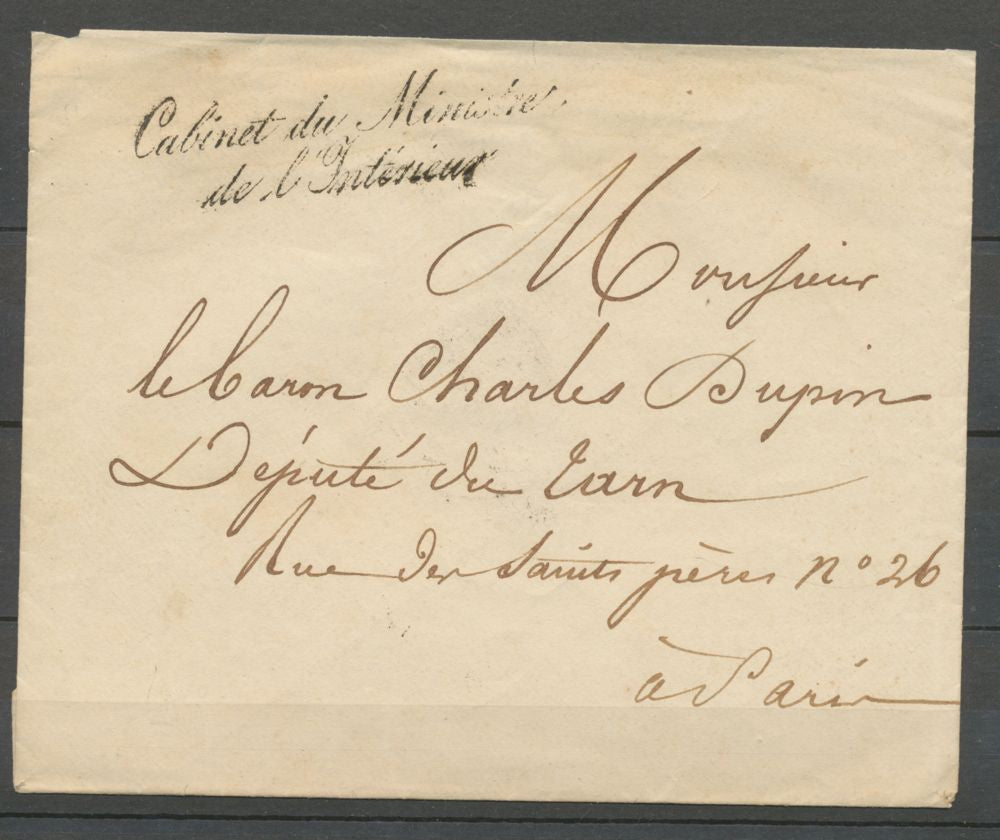 Cabinet du Ministre
de l'Intérieur
Monsieur
le baron Charles Dupin
Député du Tarn
Rue des Saints pères n° 26
à Paris